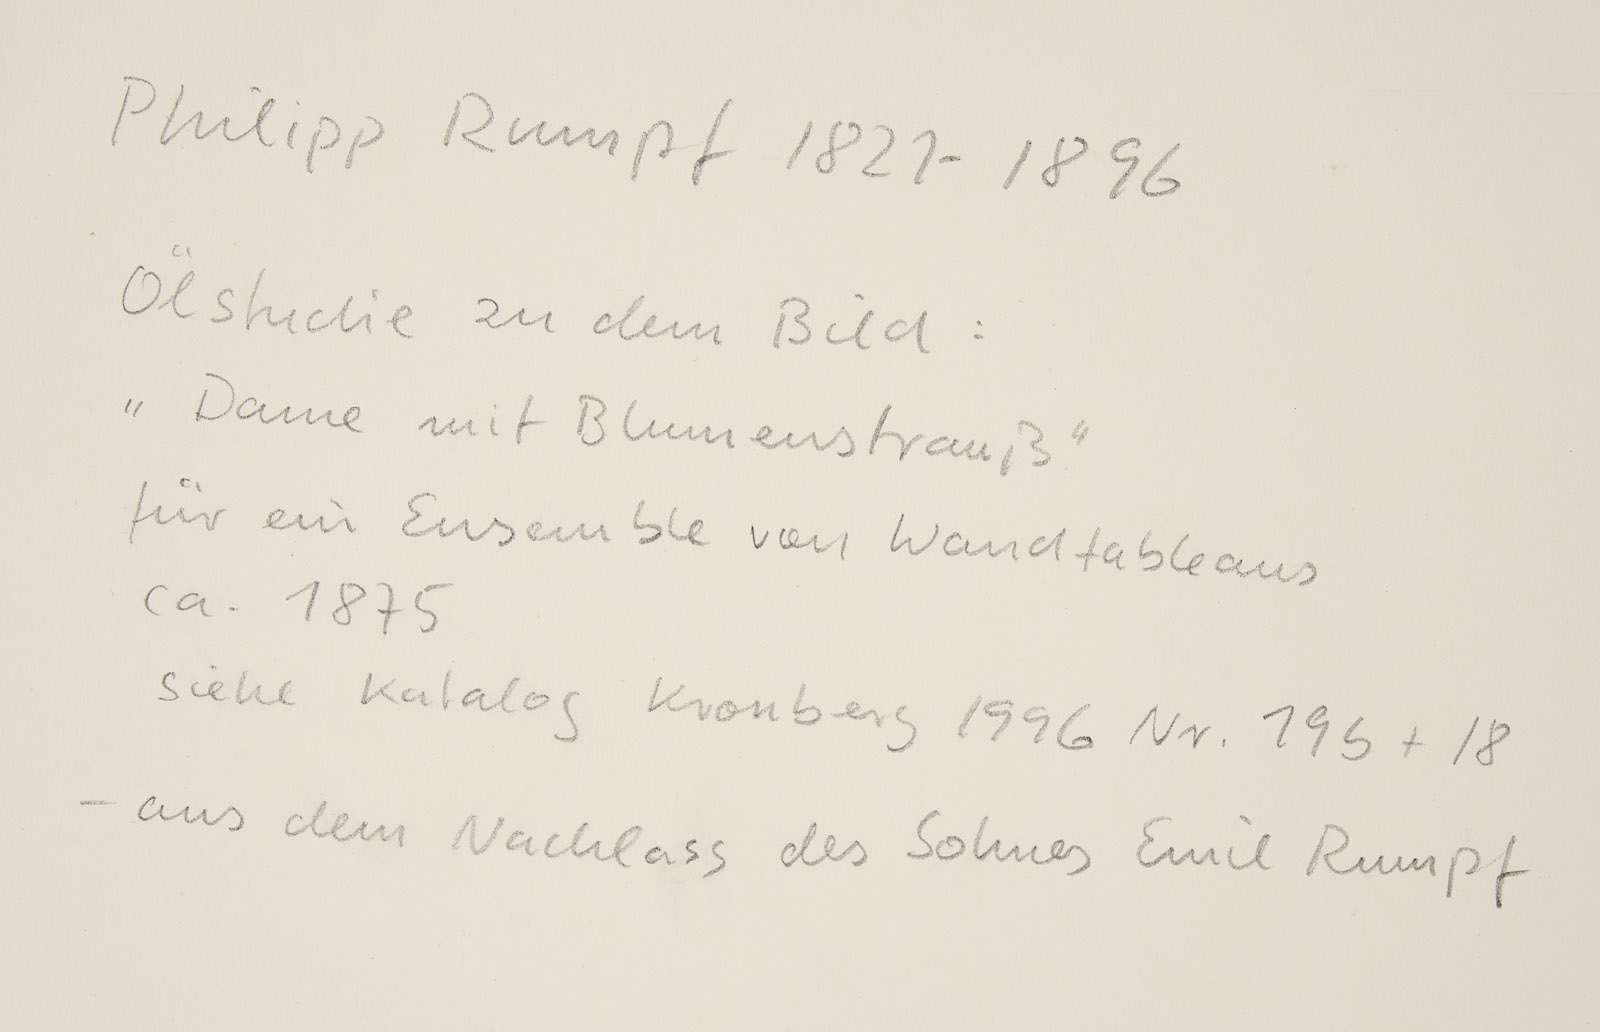 Philipp Rumpf 1821-1896
Ölstudie zu dem Bild:
„Dame mit Blumenstrauß“
für ein Ensemble von Wandtableaus
ca. 1875
siehe Katalog Kronberg 1996 Nr. 19b + 18
- aus dem Nachlass des Sohnes Emil Rumpf